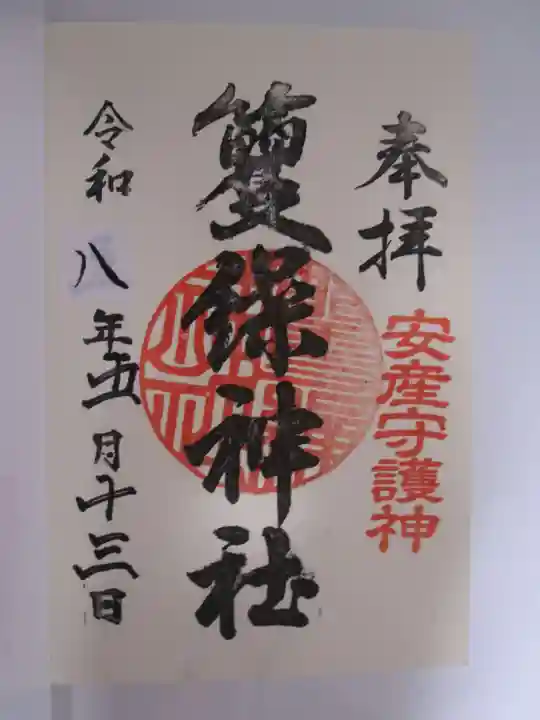 奉拝
安産守護神
籰録神社
令和八年五月十三日